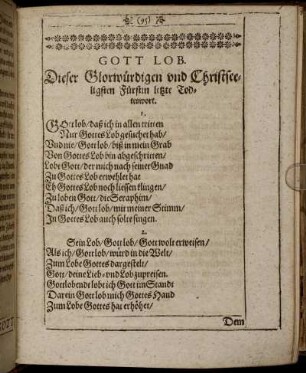 (95)
GOTT LOB.
Dieser Glorwürdigen vnd Christsee-
ligsten Fürstin letzte Tod-
tenwort.
1.
GOttlob/ daß ich in allen tritten
Nur Gottes Lob gesuchet hab/
Vnd nie/ Gottlob/ biß in mein Grab
Von Gottes Lob bin abgeschritten/
Lobt Gott/ der mich nach seiner Gnad
Zu Gottes Lob erwehlet hat
Eh Gottes Lob noch liessen klingen/
Zu loben Gott/ die Seraphim/
Daß ich/ Gottlob/ mit meiner Stimm/
In Gottes Lob auch solte singen.
2.
Sein Lob/ Gottlob/ Gott wolt erweisen/
Als ich/ Gottlob/ würd in die Welt/
Zum Lobe Gottes dargestelt/
Gott/ deine Lieb/ vnd Lob zupreisen.
Gottlobendt lobt ich Gott im Standt
Darein Gottlob mich Gottes Hand
Zum Lobe Gottes hat erhöhet/
Dem